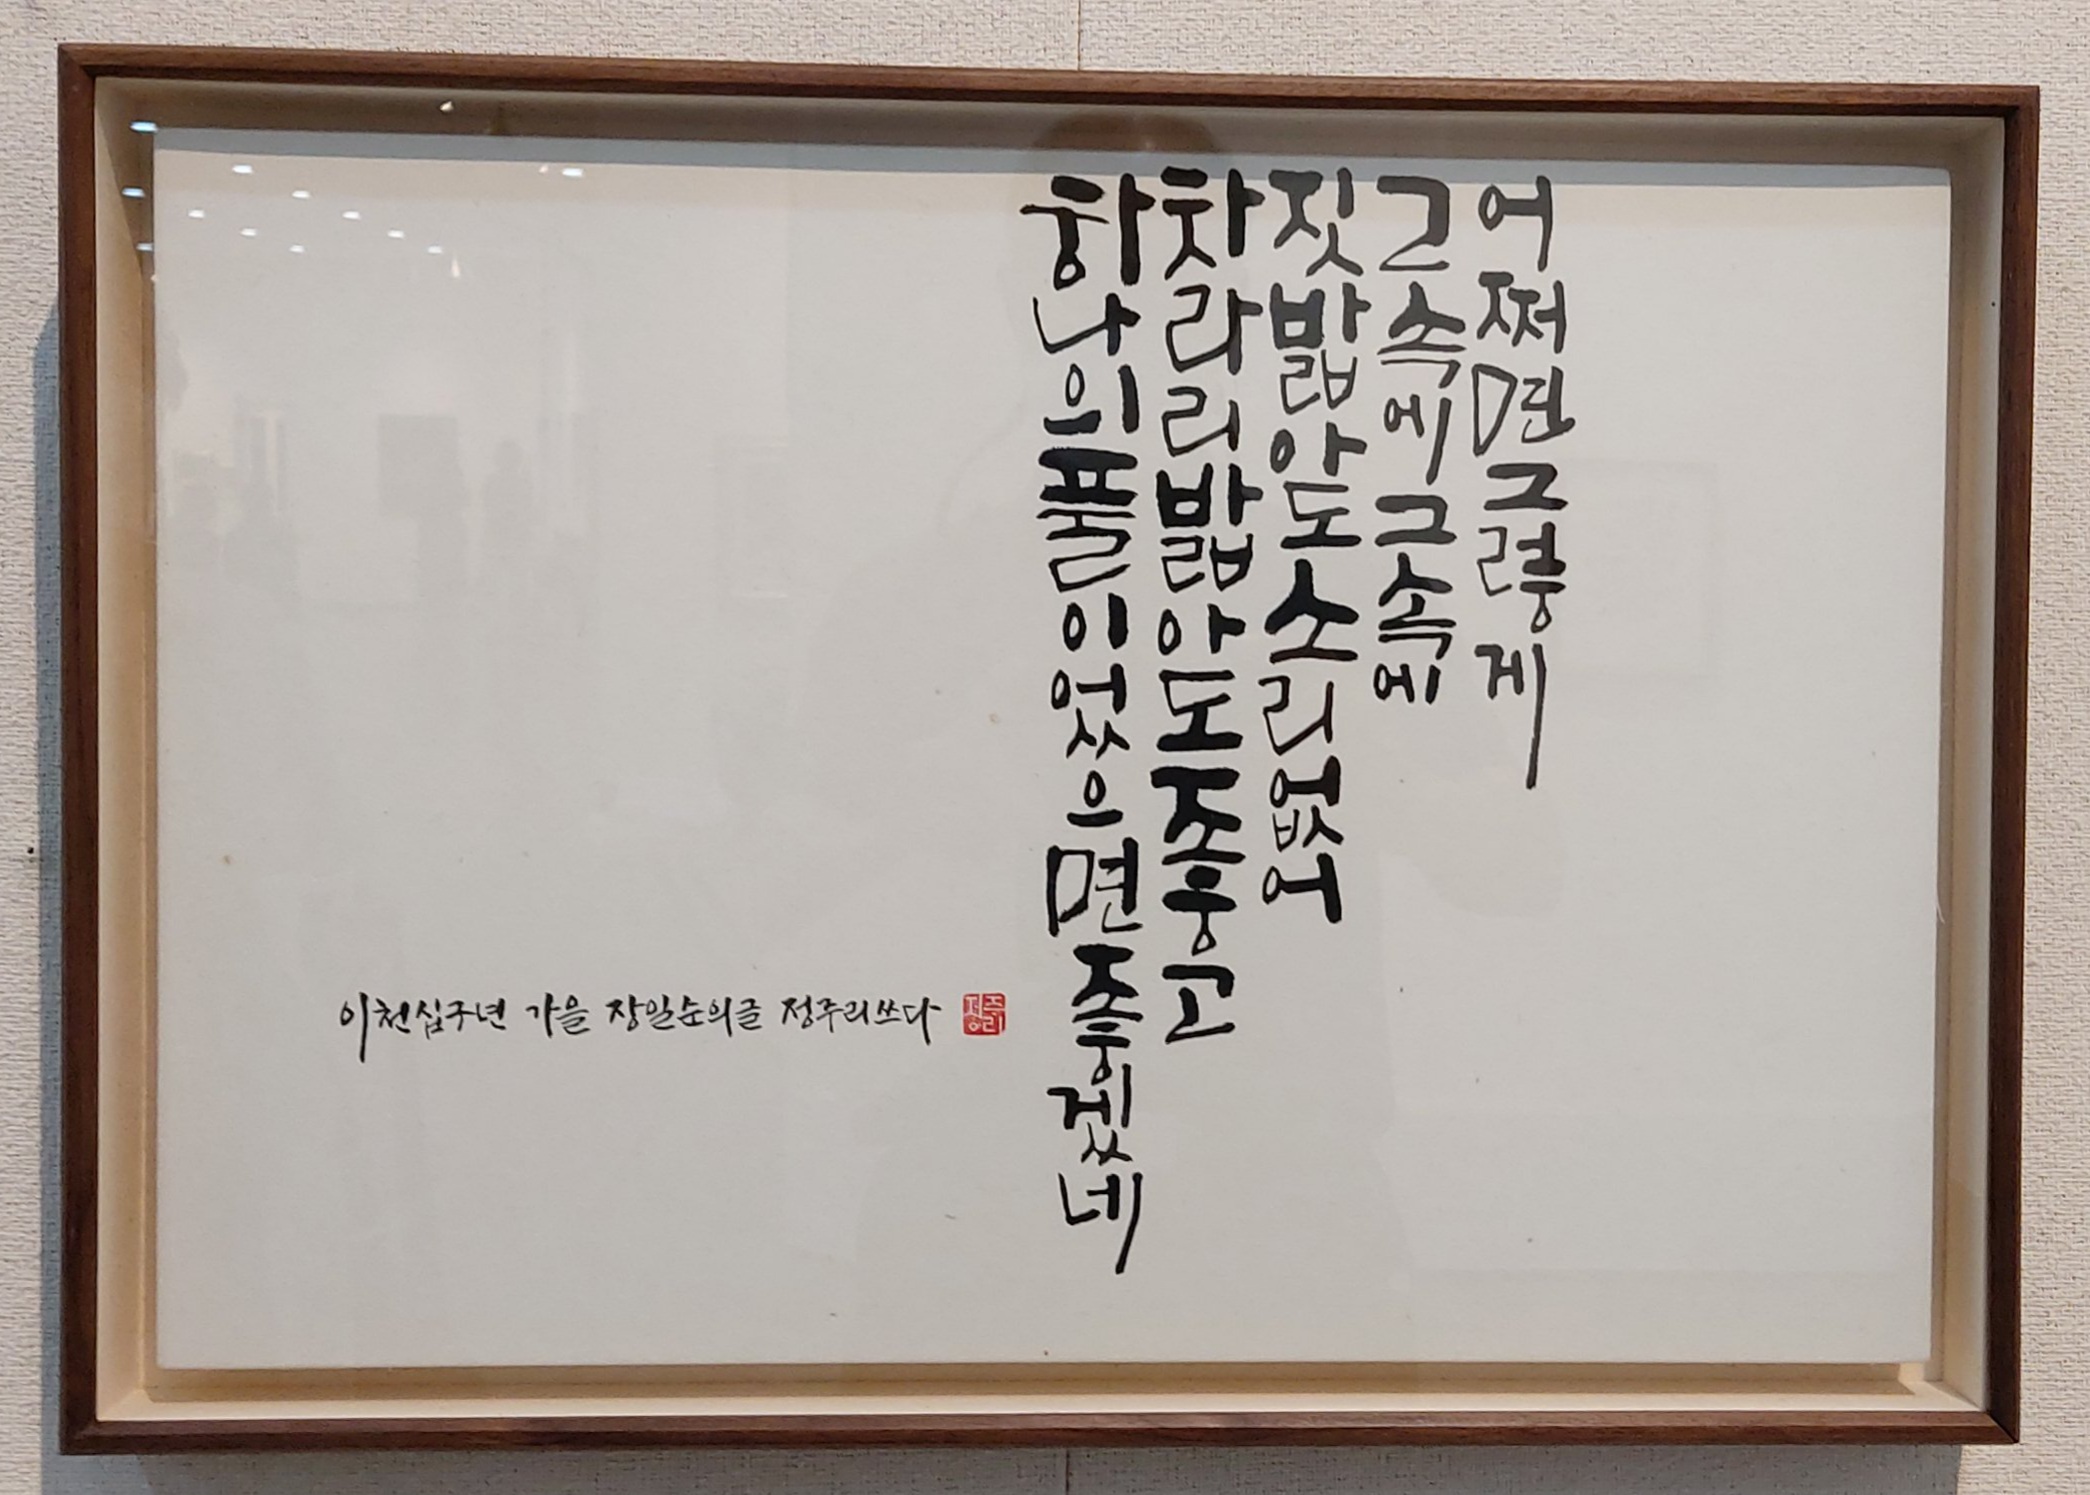 어쩌면 그렇게
그 속에 그 속에
짓밟아도 소리없어
차라리 밟아도 좋고
하나의 풀이었으면 좋겠네
이천십구년 가을 장일순의 글 정주리 쓰다
정주리